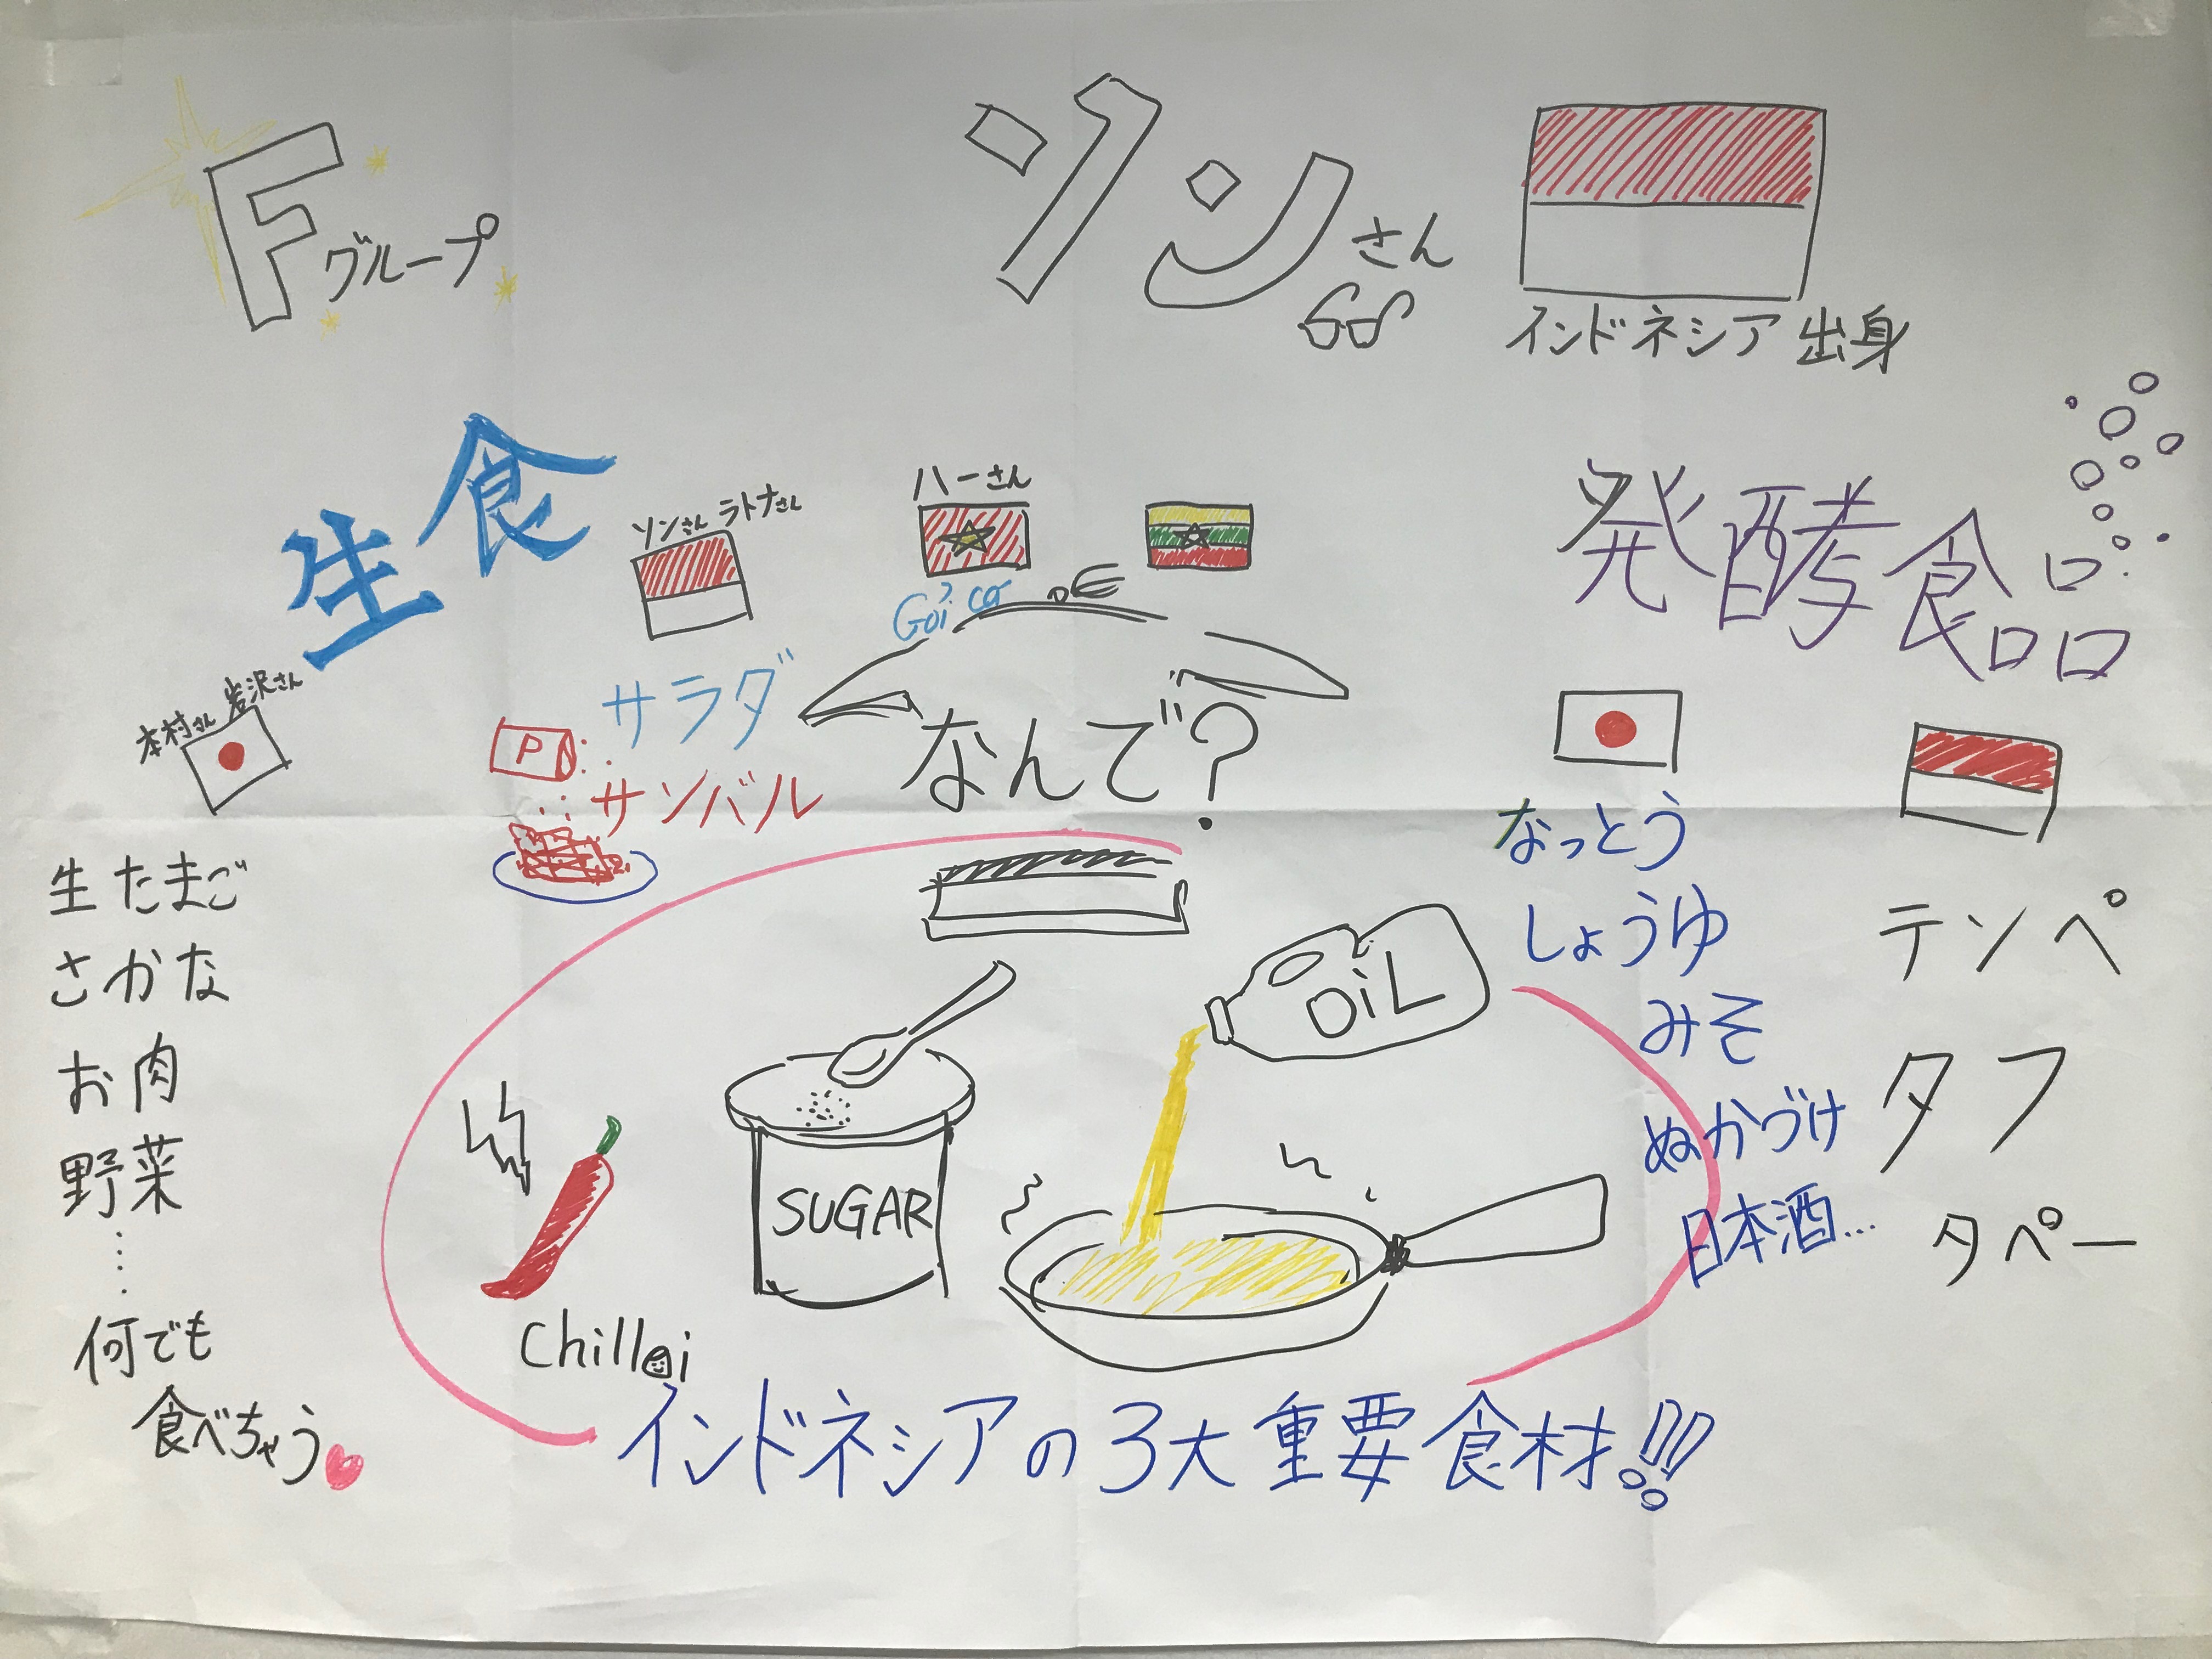 Fグループ
ソンさん
インドネシア出身
生食
本村さん 岩沢さん
生たまご
さかな
お肉
野菜
⋮
何でも
食べちゃう
ソンさん ラトナさん
サラダ
P
サンバル
ハーさん
Gỏi cá
なんで?
発酵食品
なっとう
しょうゆ
みそ
ぬかづけ
日本酒…
テンペ
タフ
タペー
OiL
SUGAR
Chilli
インドネシアの3大重要食材!!!